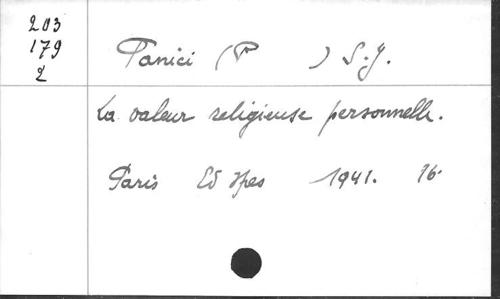 203
179
2
Panici (P ) S.J.
La valeur religieuse personnelle.
Paris Ed Spes 1941. 16.